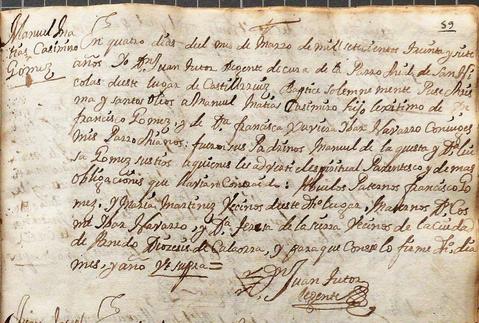 59
Manuel Ma
tias Casimiro
Gomez
En quatro dias del mes de Marzo de mil setecientos treinta y siete
años Yo Dn Juan Tutor Regente de cura de la Parroal. de San Ni
colas deste lugar de Castilrruiz, Baptice solemnemente Puse Chris
ma y santos Oleos a Manuel Matias Casimiro hijo lexitimo de Dn
francisco Gomez, y de Da francisca Xaviera Ibar Navarro Conxuges
Mis Parrochianos: fueron sus Padrinos Manuel de la questa y Da Lui
sa Gomez sus tios a quienes les adverti el espiritual Parentesco y demas
obligaciones que havian Contraido: Abuelos Paternos francisco Go
mez, y Maria Martinez Vecinos deste Dho lugar, Maternos Dn Cos
me Ibar Navarro, y Da Teresa de la
Vecinos de la
de Diocesis de Calaorra, y para que Conste lo firme Dho dia
mes, y año Vt supra=
Dn Juan Tutor
Regente